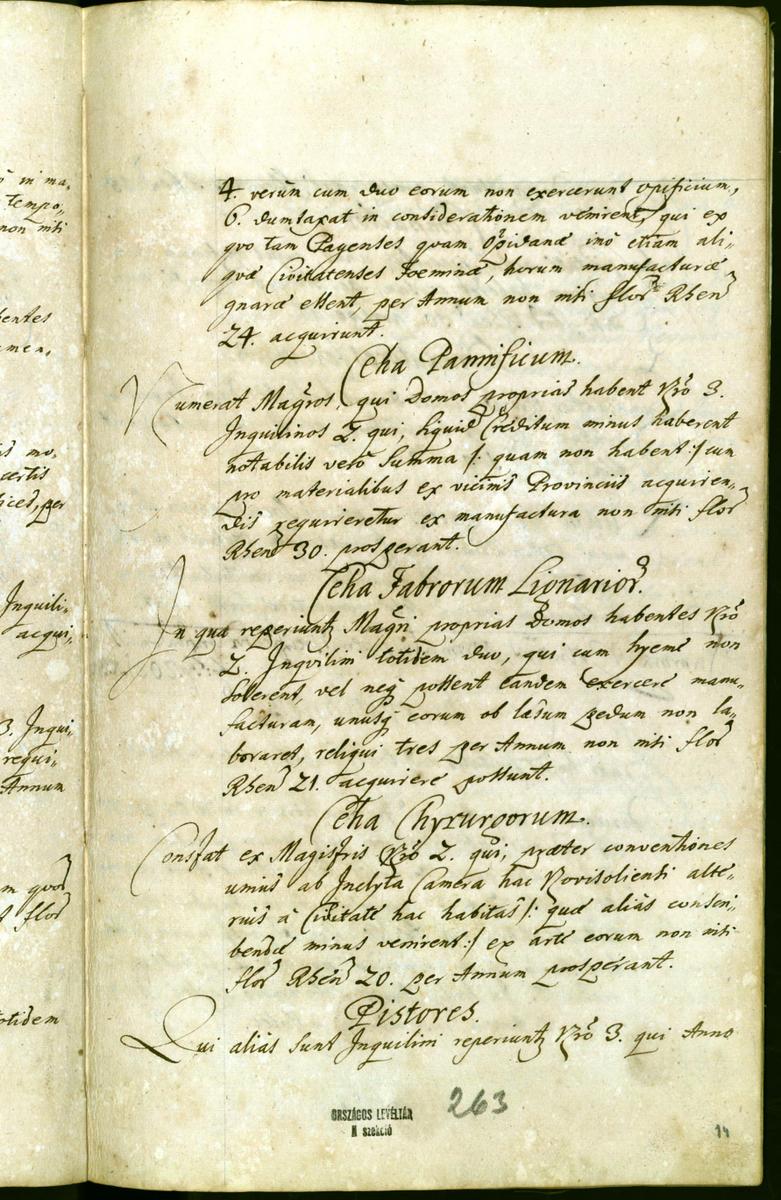 ō in ma,
tempo,,
non niti
bentes
amen,
is mo,
certis
ices, per
Inquili,
acqui,
3. Inqui,
requi,
Annum
m quor
flor
otidem
4. verùm cum duo eorum non exercerunt opificium,
6. dumtaxat in considerationem venirent, qui ex
quo tam Pagenses quam Opidanæ imò etiam ali,,
quæ Civitatenses Foeminæ, horum manufacturæ
gnaræ essent, per Annum non nisi flor Rhen
24. acquirunt.
Ceha Pannificum.
Numerat Magros, qui Domos proprias habent Nrō 3.
Inquilinos 2. qui, siquid Creditum minus haberent
notabilis verò Summa /: quam non habent :/ cum
pro materialibus ex vicinis Provinciis acquirien,,
dis requrieretur ex manufactura non nisi flor
Rhen 30. prosperant.
Ceha Fabrorum Lignarior.
In qua reperiuntz Magri proprias Domos habentes Nrō
2. Inqvilini totidem duo, qui cum hyeme non
solerent, vel neq possent eandem exercere manu,,
facturam, unusq eorum ob læsum pedum non la,,
boraret, reliqui tres per Annum non nisi flor
Rhen 21. acquirere possunt.
Ceha Chyrurgorum.
Constat ex Magistris Nrō 2. qui, præter conventiones
unius ab Inclyta Camera hac Novisoliensi alte,,
rius à Civitate hac habitas /: quæ aliàs conscri,,
bendæ minus venirent :/ ex arte eorum non nisi
flor Rhen 20. per Annum prosperant.
Pistores.
Qui aliàs sunt Inquilini reperiuntz Nrō 3. qui Anno
263
ORSZÁGOS LEVÉLTÁR
N szekció
14